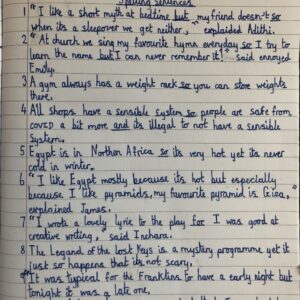 Spelling Sentences
1 "I like a short myth at bedtime but my friend doesn't so
when its a sleepover we get neither, explaided Adithi.
2 "At church we sing my favourite hymn everyday so I try to
learn the name but I can never remember it! said ennoyed
Emily.
3 A gym always has a weight rack so you can store weights
there.
4 All shops have a sensible system so people are safe from
covid a bit more and its illegal to not have a sensible
System.
5 Egypt is in Northen Africa so its very hot yet its never
cold in winter.
6 "I like Egypt mostly because its hot but especially
because I like pyramids, my favourite pyramid is Giza,"
explained James.
7 "I wrote a lovely lyric to the play for I was good at
creative writing, said Inehara.
8 The Legend of the Lost Keys is a mystery programme yet it
just so happens that its not scary.
9 "It was typical for the Franklins to have a early night but
tonight it was a late one,